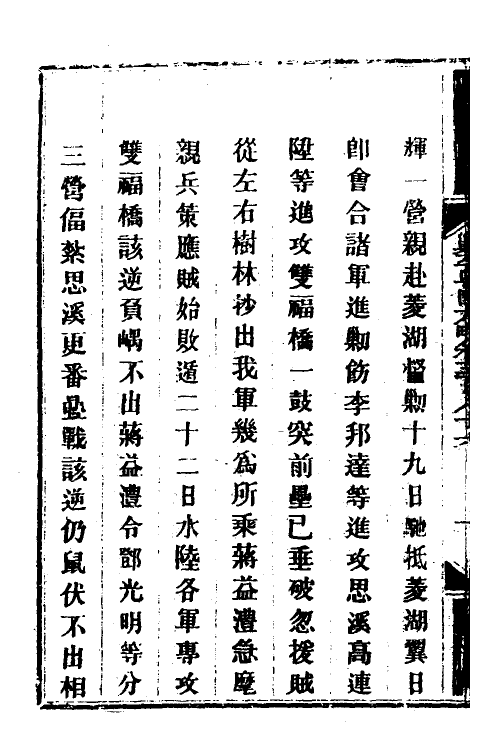 輝一營親赴菱湖督勦十九日馳抵菱湖翼日
卽會合諸軍進勦飭李邦達等進攻思溪高連
陞等進攻雙福橋一鼓突前壘已垂破忽援賊
從左右樹林抄出我軍幾爲所乘蔣益澧急麾
親兵策應賊始敗遁二十二日水陸各軍專攻
雙福橋該逆負嵎不出蔣益澧令鄧光明等分
三營偪紮思溪更番壘戰該逆仍鼠伏不出相